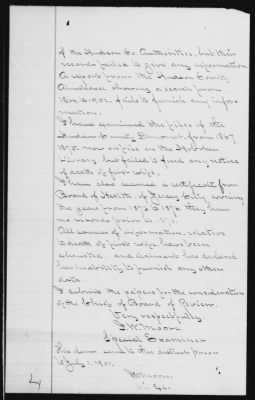 of the Hudson Co. Authorities, but their
records failed to give any information.
A report from the Hudson County
Almshouse showing a search from
to 1902, fails to furnish any infor-
mation.
I have examined the files of the
Hudson County Democrat, from 1867
1875 now on file in the Hoboken
Library but failed to find any notice
of death of first wife.
I have also secured a certificate from
Board of Health of Jersey City, covering
the years from 1873 to 1876, they have
no records prior to 1873.
All sources of information, relative
to death of first wife have been
exhausted, and claimant has declared
his inability to furnish any other
data.
I submit the papers for the consideration
of the Chief of Board of Review.
Very respectfully,
Moore
Special Examiner
This claim came to this district prior
to July 1, 1902.
Moore